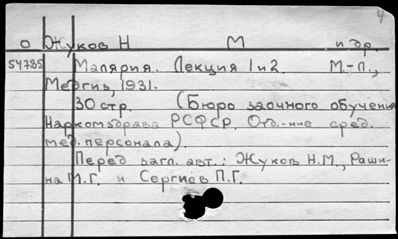 4
О Жуков Н М и др.
54785 Малярия. Лекция 1 и 2. М.-Л.,
Медгиз, 1931.
30 стр. (Бюро заочного обучения
Наркомздрава РСФСР. Отд-ние сред.
мед. персонала).
Перед загл. авт.: Жуков Н.М., Раши-
на М.Г. и Сергиев П.Г.